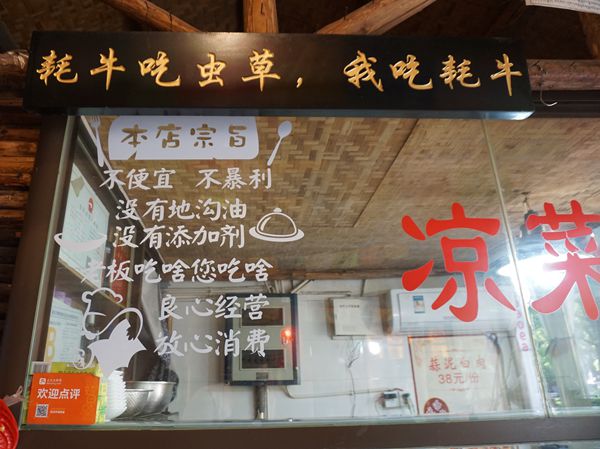 耗牛吃虫草，我吃耗牛
本店宗旨
不便宜 不暴利
没有地沟油
没有添加剂
老板吃啥您吃啥
良心经营
放心消费
凉菜
蒜泥白肉
38元/份
欢迎点评